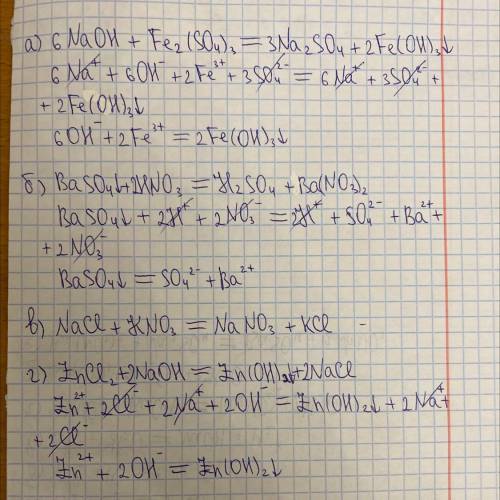 а) 6NaOH + Fe₂(SO₄)₃ = 3Na₂SO₄ + 2Fe(OH)₃↓
6Na⁺ + 6OH⁻ + 2Fe³⁺ + 3SO₄²⁻ = 6Na⁺ + 3SO₄²⁻ +
+ 2Fe(OH)₃↓
6OH⁻ + 2Fe³⁺ = 2Fe(OH)₃↓
б) BaSO₄↓ + 2HNO₃ = H₂SO₄ + Ba(NO₃)₂
BaSO₄↓ + 2H⁺ + 2NO₃⁻ = 2H⁺ + SO₄²⁻ + Ba²⁺ +
+ 2NO₃⁻
BaSO₄↓ = SO₄²⁻ + Ba²⁺
в) NaCl + KNO₃ = NaNO₃ + KCl –
г) ZnCl₂ + 2NaOH = Zn(OH)₂↓ + 2NaCl
Zn²⁺ + 2Cl⁻ + 2Na⁺ + 2OH⁻ = Zn(OH)₂↓ + 2Na⁺ +
+ 2Cl⁻
Zn²⁺ + 2OH⁻ = Zn(OH)₂↓